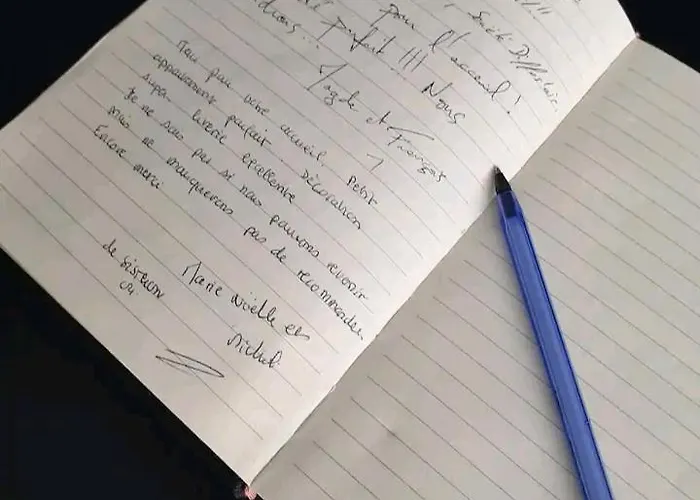 pour l'accueil !
parfait !!!! Nous
Magda et François
Merci pour votre accueil. Petit
appartement parfait, Décoration
super, literie excellente
Je ne sais pas si nous pourrons revenir
mais ne manquerons pas de recommander.
Encore merci
Marie Noëlle et
Michel
de Sisteron
04.